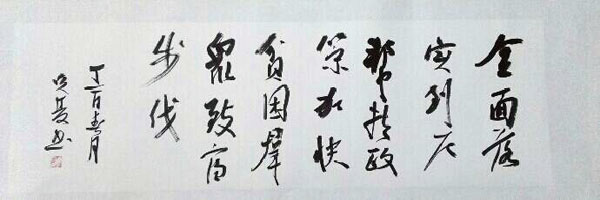 全面落
实到户
帮扶政
策加快
贫困群
眾致富
步伐
丁酉春月
书